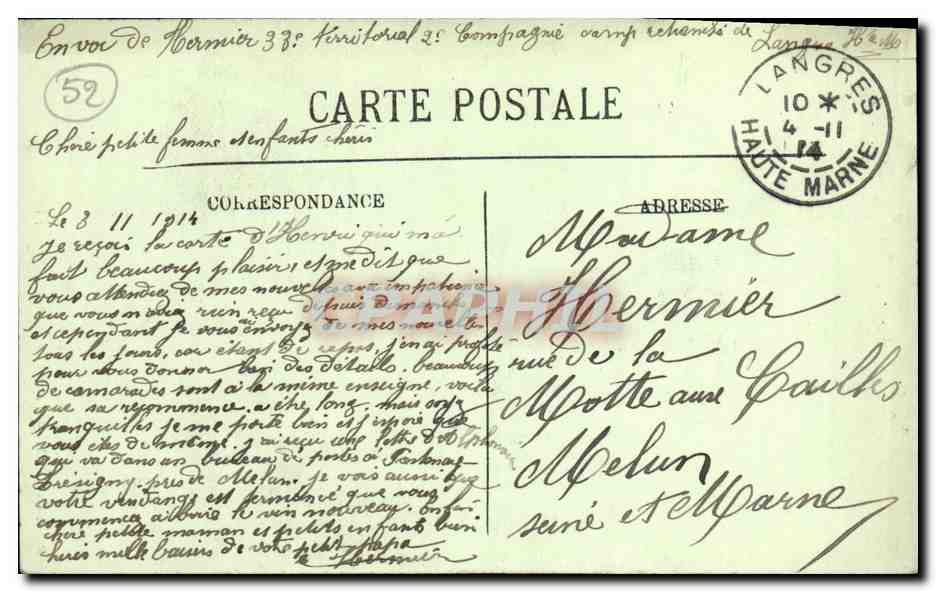 Envoi de Hermier 33e térritorial 2e Compagnie camp retranché de Langres Hte M
52
LANGRES
10 *
4 -11
14
HAUTE MARNE
CARTE POSTALE
Chère petite femme et enfants chéris
CORRESPONDANCE
Le 3 11 1914
Je reçois la carte d'Henri qui m'a
fait beaucoup plaisir, et me dit que
vous attendiez de mes nouvelles avec impatience
que vous n'avez rien reçu depuis dimanche
et cependant je vous ai envoyé de mes nouvelles
tous les jours, car étant de repos, j'en ai profité
pour vous donner des détails. beaucoup
de camarades sont à la même enseigne, voilà
que sa recommence. a être long, mais soyez
tranquilles je me porte bien et j'espère que
vous êtes de même. j'ai reçu une lettre de
qui va dans un bureau de postes à Fontenay
Trésigny près de Melun. je vois aussi que
votre vendange est fermencé que vous
commencez a boire le vin nouveau.
chère petite maman et petits enfants bien
chéris mille baisers de votre petit papa
Hermier
ADRESSE
Madame
Hermier
rue de la
Motte aux Cailles
Melun
seine et Marne
CPAPHIL